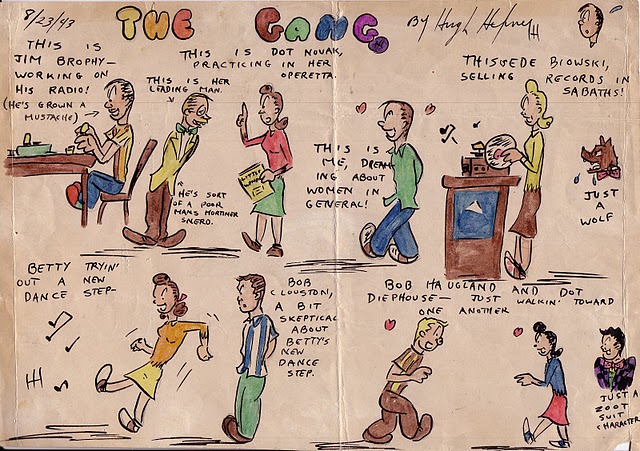 8/23/43
THE GANG
By Hugh Hefner HH
THIS IS
JIM BROPHY—
WORKING ON
HIS RADIO!
(HE'S GROWN A
MUSTACHE)
THIS IS HER
LEADING MAN.
HE'S SORT
OF A POOR
MANS MORTIMER
SNERD.
THIS IS DOT NOVAK,
PRACTICING IN HER
OPERETTA.
THIS IS
ME, DREAM-
ING ABOUT
WOMEN IN
GENERAL!
THIS IS EDE BIOWSKI,
SELLING RECORDS IN
SABATHS!
JUST
A
WOLF
BETTY TRYIN'
OUT A NEW
DANCE STEP—
HH
BOB
CLOUSTON,
A BIT
SKEPTICAL
ABOUT
BETTY'S
NEW
DANCE
STEP.
BOB HAUGLAND AND DOT
DIEPHOUSE— JUST WALKIN' TOWARD
ONE ANOTHER
JUST A
ZOOT
SUIT
CHARACTER